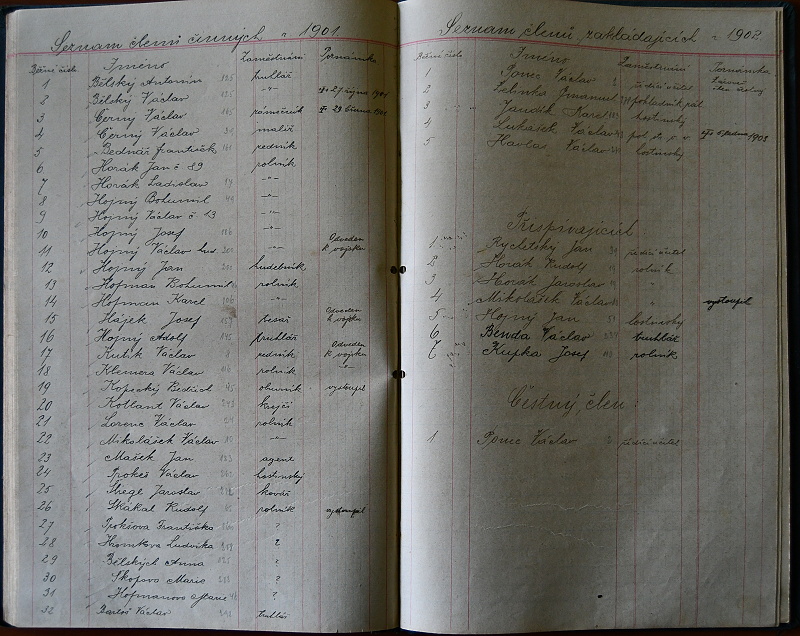 Seznam členů činných r. 1901
Běžné číslo Jméno Zaměstnání Poznámka
1 Bělský Antonín 125 truhlář
2 Bělský Václav 125 -"-
3 Černý Václav 165
4 Černý Václav malíř
5 Bednář František 161 zedník
6 Horák Jan č 89 rolník
7 Horák Ladislav 14 -"-
8 Hojný Bohumil 49 -"-
9 Hojný Václav č. 13 -"-
10 Hojný Josef 106 -"-
11 Hojný Václav -"- Odveden k vojsku
12 Hojný Jan hudebník
13 Hofman Bohumil rolník
14 Hofman Karel 106 -"-
15 Hájek Josef 157 tesař Odveden k vojsku
16 Hojný Adolf 145 truhlář
17 Kutík Václav zedník Odveden k vojsku
18 Klemera Václav 116 rolník
19 Kopecký Bedřich 45 vystoupil
20 Kotlant Václav 243 krejčí
21 Lorenc Václav 24 rolník
22 Mikolášek Václav 10 -"-
23 Mašek Jan agent
24 Prokeš Václav hostinský
25 Jaroslav kovář
26 Skákal Rudolf rolník vystoupil
27 Prokšova Františka ?
28 Hromkova Ludvika ?
29 Bělských Anna ?
30 Skopova Marie ?
31 Hofmanova Marie ?
32 Bartoš Václav truhlář
Seznam členů zakládajících r. 1902
Běžné číslo Jméno Zaměstnání Poznámka
1 Ponec Václav řídící učitel
2 Zelinka Emanuel pokladník
3 Jandík Karel hostinský
4 Lukášek Václav 1903
5 Havlas Václav hostinský
Přispívajících
1 Rychetský Jan řídící učitel
2 Horák Rudolf rolník
3 Horák Jaroslav "
4 Mikolášek Václav " vystoupil
5 Hojný Jan hostinský
6 Benda Václav truhlář
7 Kupka Josef rolník
Čestný člen:
1 Ponec Václav řídící učitel